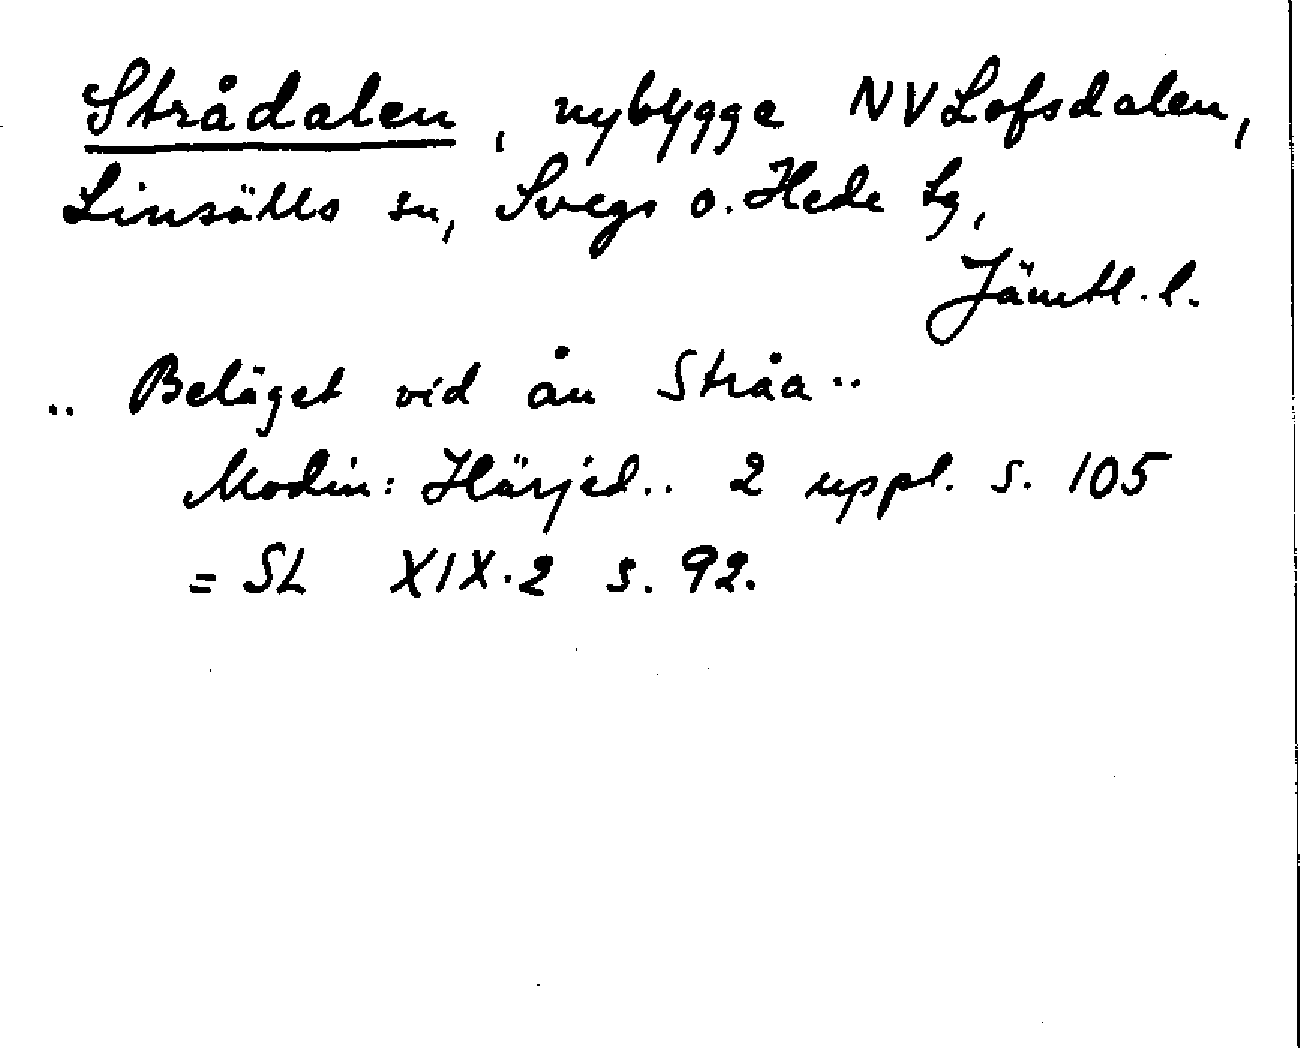 Strådalen, nybygge NV Lofsdalen,
Linsälls sn, Svegs o. Hede tg,
Jämtl. l.
.. Beläget vid ån Stråa ..
Modin: Härjed.. 2 uppl. s. 105
= SL XIX.2 s. 92.